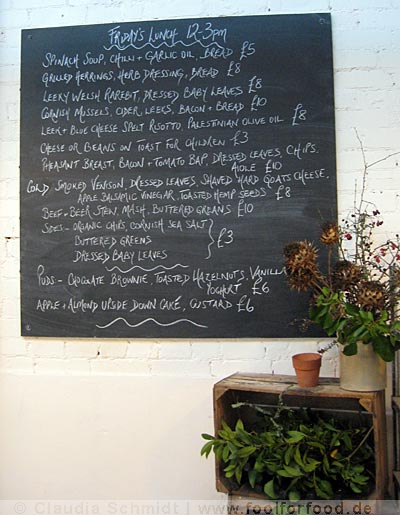 FRIDAY'S LUNCH 12-3pm
SPINACH SOUP, CHILLI + GARLIC OIL, BREAD £5
GRILLED HERRINGS, HERB DRESSING, BREAD £8
LEEKY WELSH RAREBIT, DRESSED BABY LEAVES £8
CORNISH MUSSELS, CIDER, LEEKS, BACON + BREAD £10
LEEK + BLUE CHEESE SPELT RISOTTO, PALESTINIAN OLIVE OIL £8
CHEESE OR BEANS ON TOAST FOR CHILDREN £3
PHEASANT BREAST, BACON + TOMATO BAP, DRESSED LEAVES, CHIPS,
AIOLE £10
COLD SMOKED VENISON, DRESSED LEAVES, SHAVED HARD GOATS CHEESE,
APPLE BALSAMIC VINEGAR, TOASTED HEMP SEEDS £8
BEEF + BEER STEW, MASH, BUTTERED GREENS £10
SIDES - ORGANIC CHIPS, CORNISH SEA SALT
BUTTERED GREENS £3
DRESSED BABY LEAVES
PUDS - CHOCOLATE BROWNIE, TOASTED HAZELNUTS, VANILLA
YOGHURT £6
APPLE + ALMOND UPSIDE DOWN CAKE, CUSTARD £6
© Claudia Schmidt | www.foolforfood.de